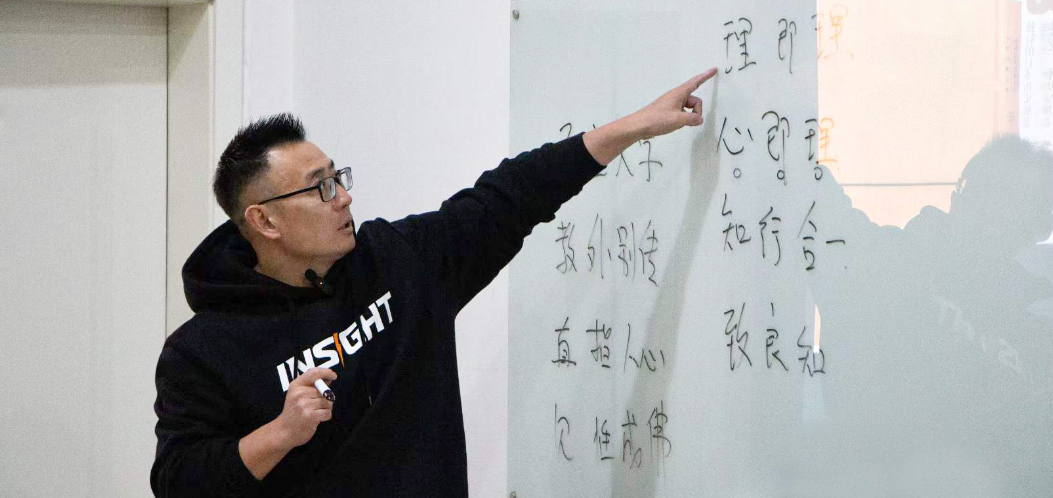 INSIGHT
文字
教外别传
直指人心
见性成佛
理即理
心即理
知行合一
致良知